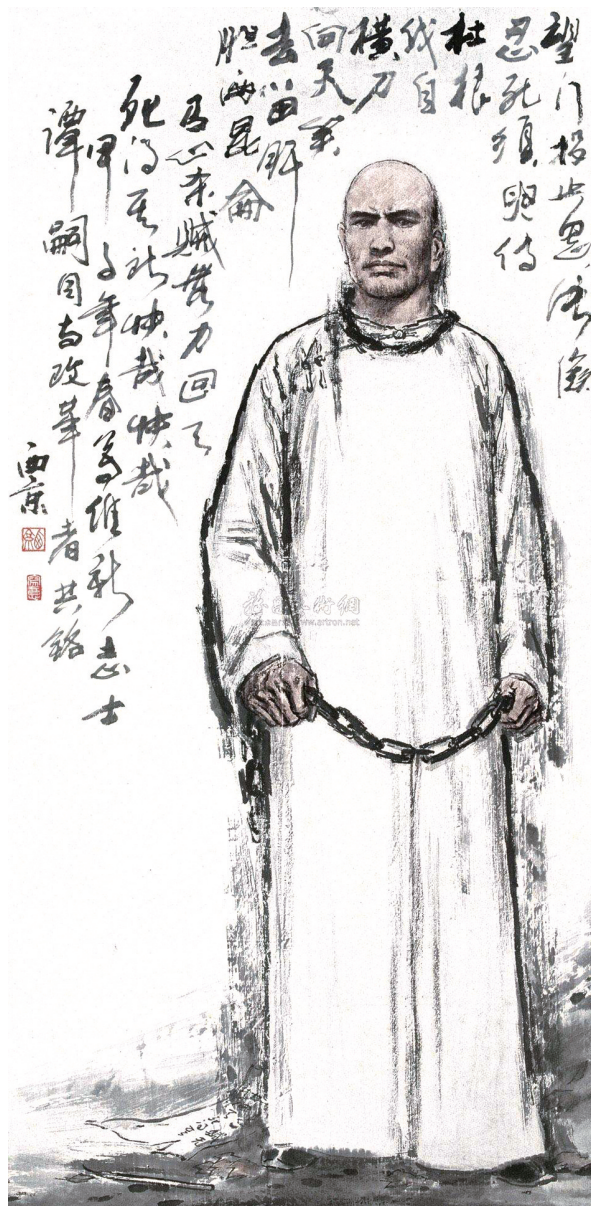 望门投止思張儉
忍死須臾待
杜根
我自
横刀
向天笑
去留肝
胆兩昆侖
有心杀賊無力回天
死得其所快哉快哉
甲子年春写维新志士
譚嗣同与改革者共銘
西京
雅昌艺术網
artron.net